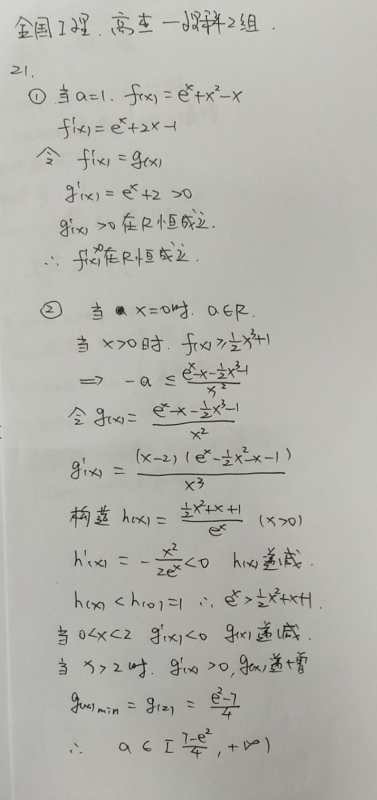 全国工程.高杰一般群2组.
21.
① 当a=1. f(x)=eˣ+x²-x
f'(x)=eˣ+2x-1
令 f'(x)=g(x)
g'(x)=eˣ+2>0
g'(x)>0在R恒成立.
∴ f'(x)>0在R恒成立.
② 当 x=0时. a∈R.
当 x>0时. f(x)≥½x³+1
⇒ -a ≤ (eˣ-x-½x³-1)/x²
令 g(x)= (eˣ-x-½x³-1)/x²
g'(x)= (x-2)(eˣ-½x²-x-1)/x³
构造 h(x)= (½x²+x+1)/eˣ (x>0)
h'(x)= -x²/(2eˣ)<0 h(x)递减.
h(x)<h(0)=1 ∴ eˣ>½x²+x+1.
当 0<x<2 g'(x)<0 g(x)递减.
当 x>2时. g'(x)>0, g(x)递增
g(x)min=g(2)= (e²-7)/4
∴ a∈[(7-e²)/4, +∞)